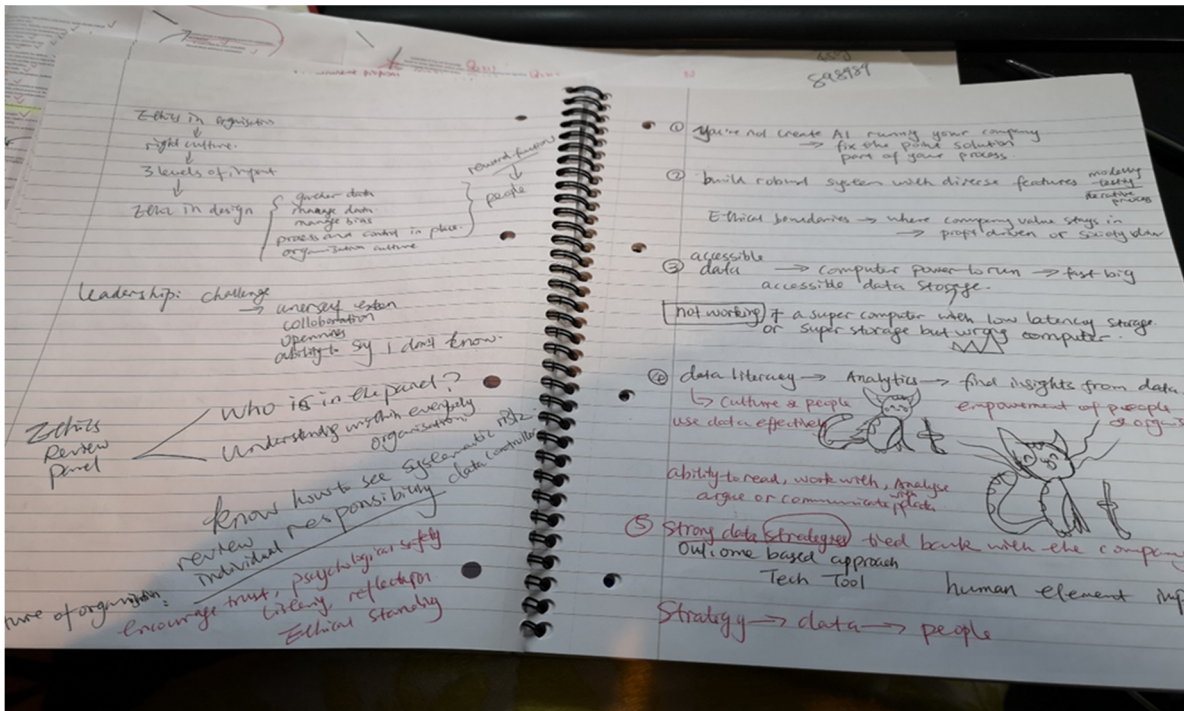 898989
Ethics in organisation
↓
right culture.
↓
3 levels of input
↓
Ethic in design
gather data
manage data
manage bias
process and control in place.
organization culture
people
reward functions
Leadership: challenge
→
collaboration
openness
ability to say I don't know.
Ethics
Review
Panel
Who is in the panel?
Understanding within everybody
organisation.
know how to see systematic risk
review data controller
individual responsibility
encourage trust, psycological safety
Listening, reflection
Ethical standing
① You're not create AI running your company
→ fix the point solution
part of your process.
② build robust system with diverse features
modelling
testing
iterative
process
Ethical boundaries → where company value stays in
→ profit driven or society
③ accessible
data → computer power to run → fast big
accessible data storage.
not working
a super computer with low latency storage
or super storage but wrong computer.
④ data literacy → Analytics → find insights from data
↳ Culture & people
empowerment of people
use data effectively
ability to read, work with, Analyse
argue or communicate with
⑤ Strong data strategies tied back with the company
Outcome based approach
Tech Tool
human element imp
Strategy → data → people